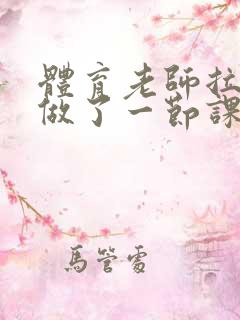 體育老師拉
做了一節課
馬管雷